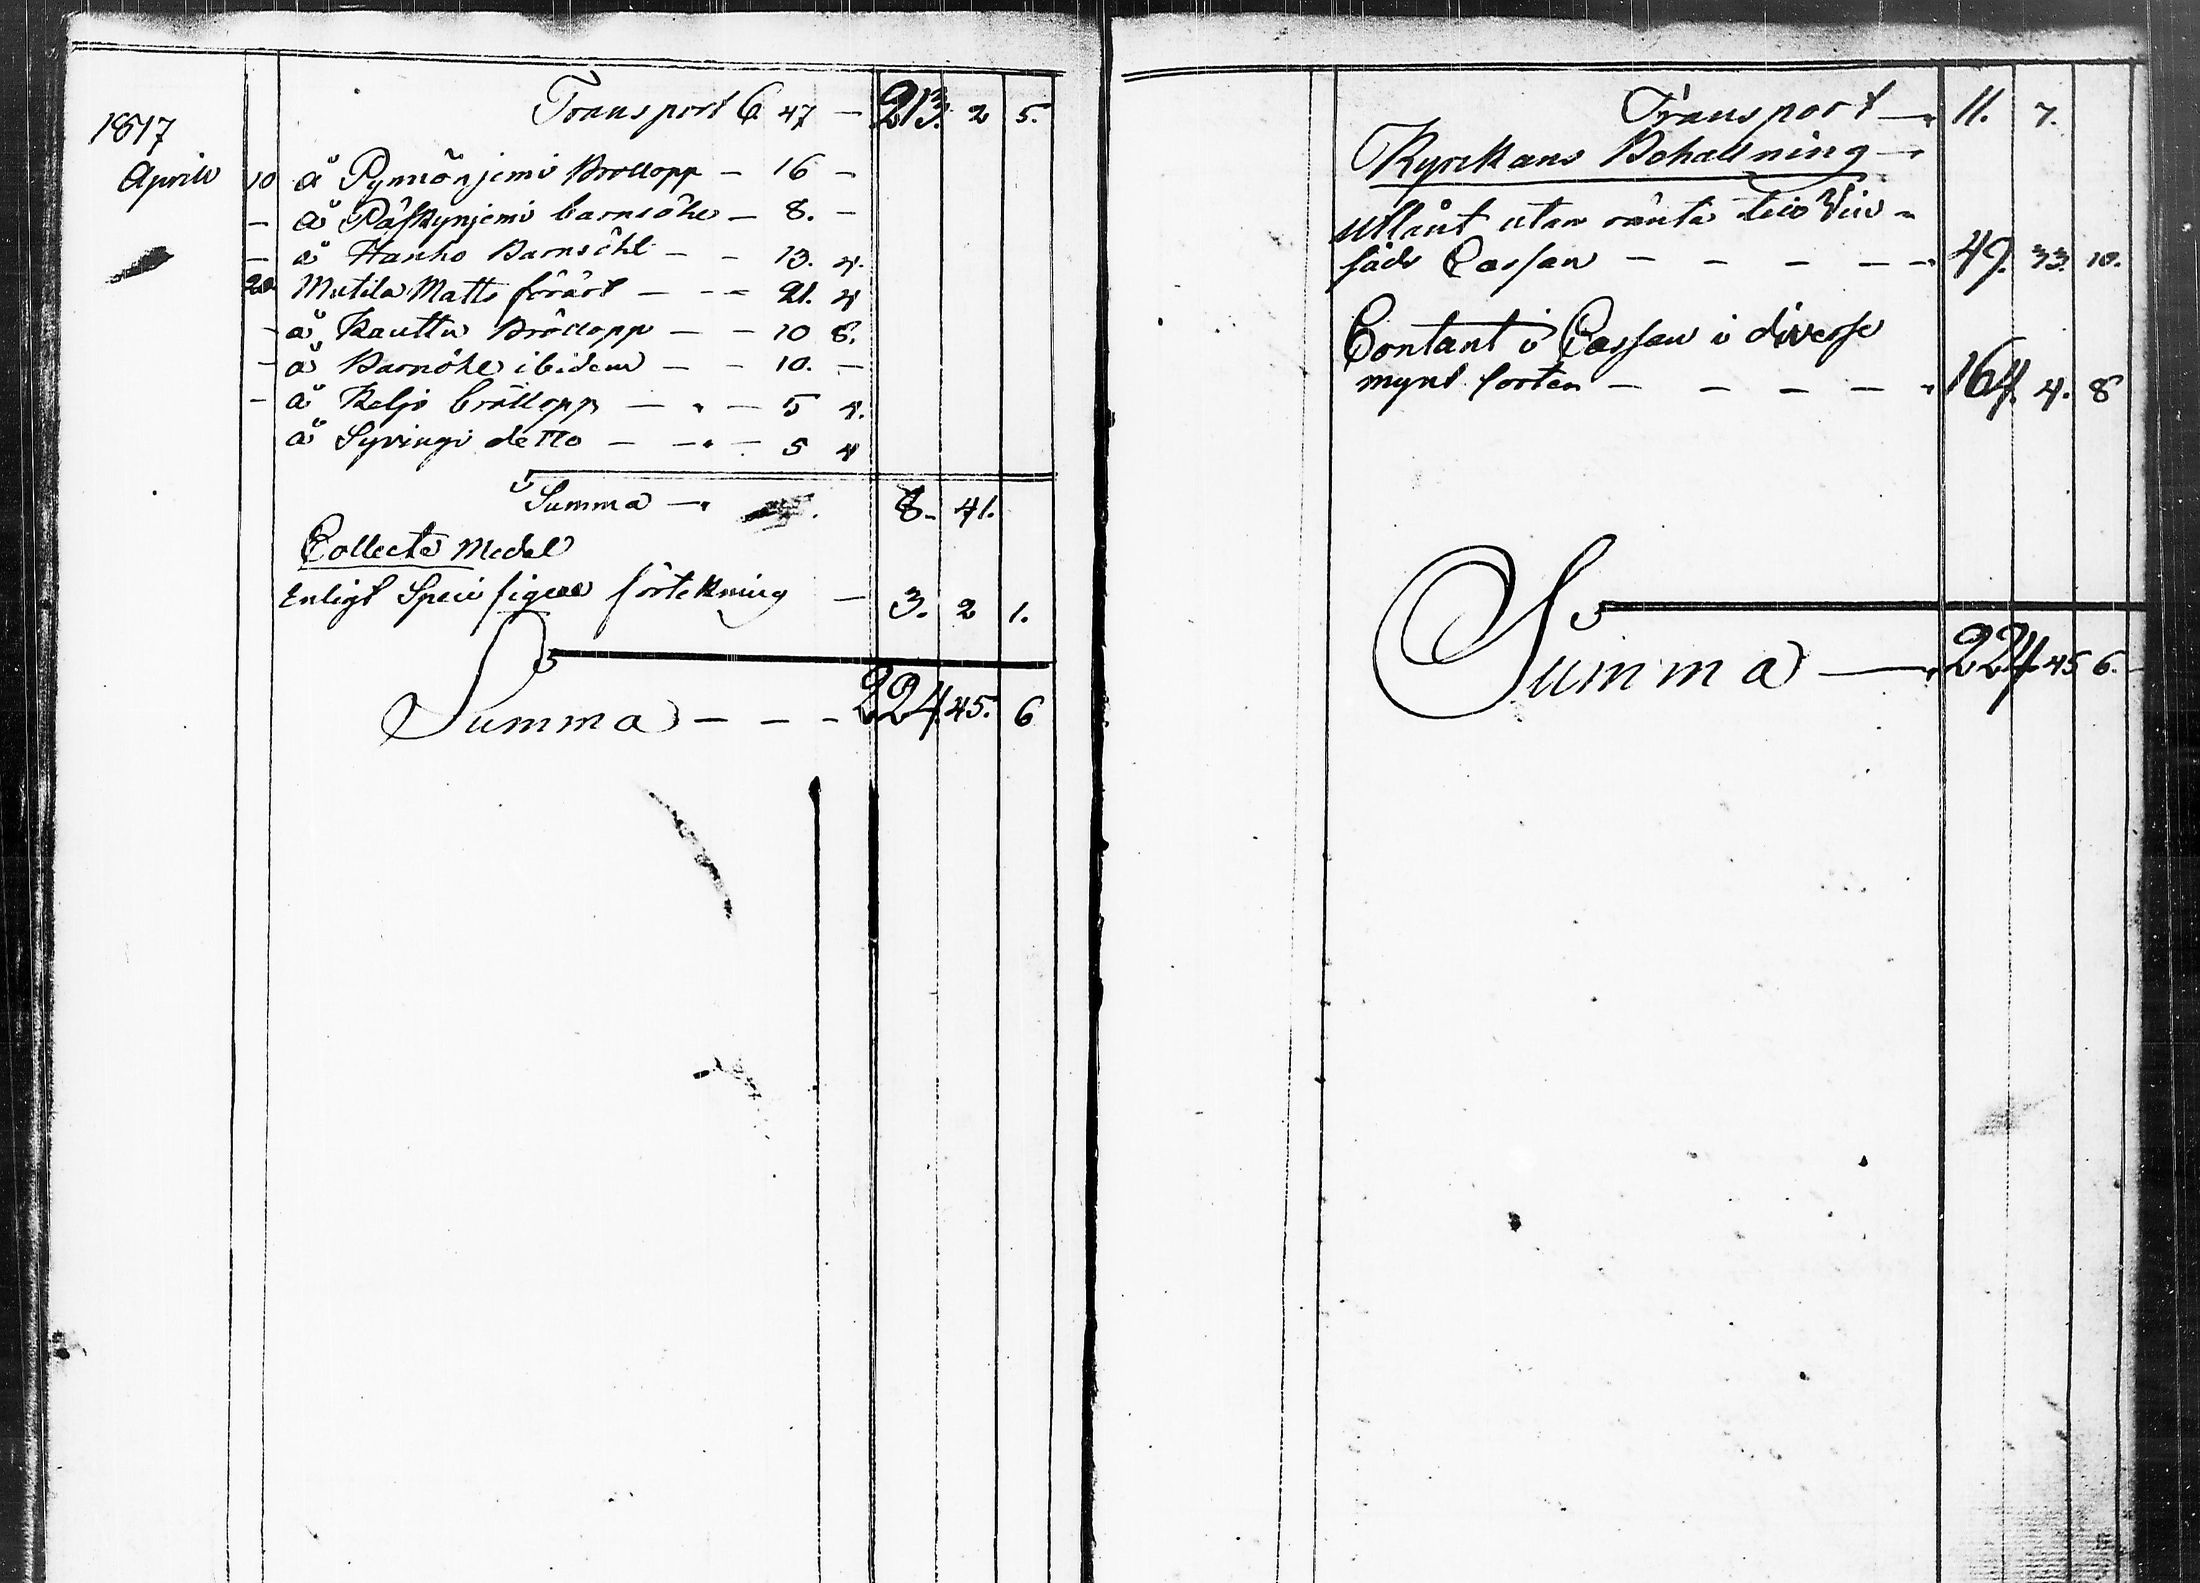 Transport 6 47 — 213. 2 5.
1817
Aprill 10 å Pynnönjemi Bröllopp — 16 —
— å Päskynjemi barnsöhl — 8. —
— å Hanho Barnsöhl — — 13. 4.
20 Mutila Matts förärt — — — 21. 4
— å Kauttu Bröllopp — — 10 8.
— å Barnöhl ibidem — — 10. —
— å Keljo bröllopp — — 5 4.
å Syvingi detto — — — 5 4
Summa — 8. 41.
Collecte Medel
Enligt Specifigerad förtekning — 3. 2 1.
Summa — — — 224. 45. 6
Transport — 11. 7.
Kyrckans Behallning —
Utlånt utan ränta till Vin-
säds Cassan — — — — — 49. 33. 10.
Contant i Cassan i diverse
mynt sorter — — — — — 164. 4. 8
Summa — 224 45 6.